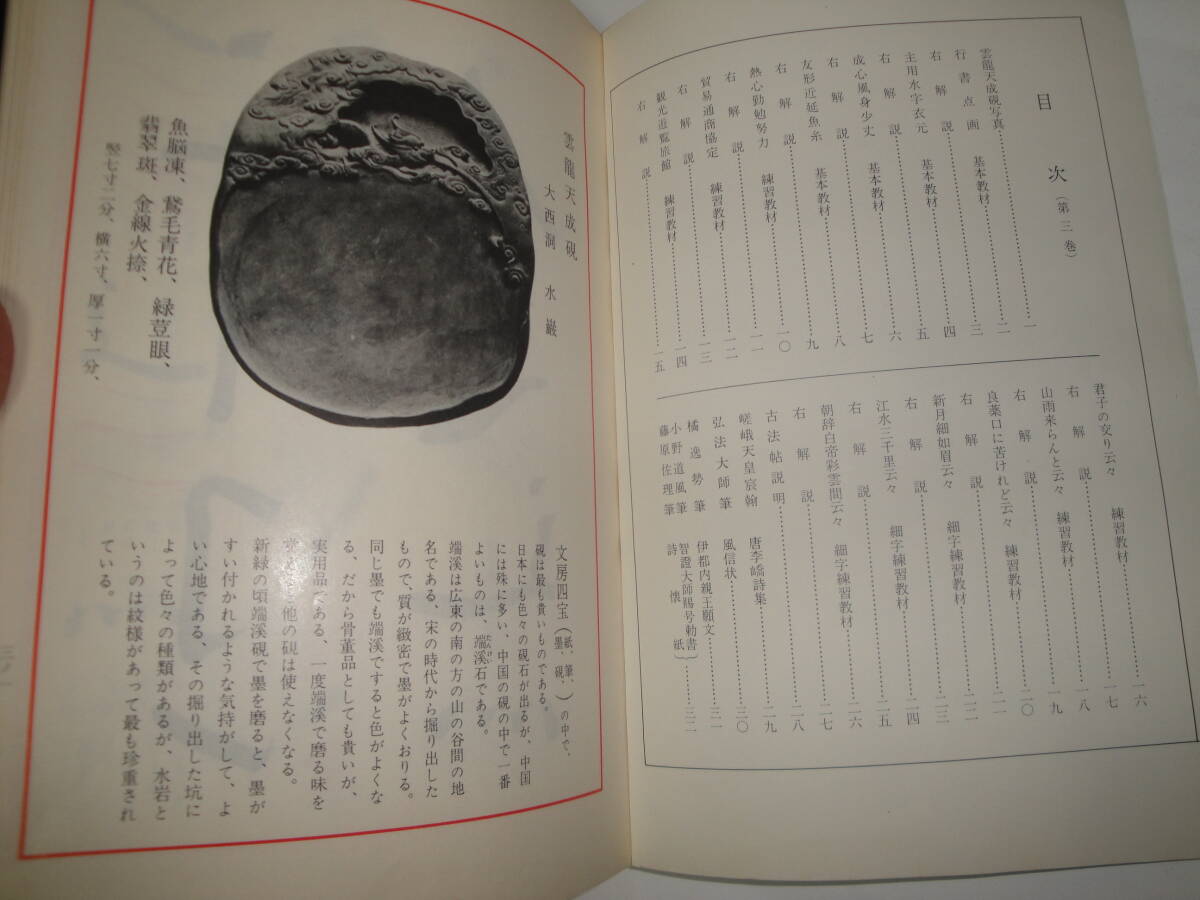 目次（第三巻）
雲龍天成硯写真……一
行書点画 基本教材……二
右解説……三
主用水字衣元 基本教材……四
右解説……五
成心風身少丈 基本教材……六
右解説……七
友形近延魚糸 基本教材……八
右解説……九
熱心勤勉努力 練習教材……一〇
右解説……一一
貿易通商協定 練習教材……一二
右解説……一三
観光遊覧旅館 練習教材……一四
右解説……一五
君子の交り云々 練習教材……一六
右解説……一七
山雨来らんと云々 練習教材……一八
右解説……一九
良薬口に苦けれど云々 練習教材……二〇
右解説……二一
新月細如眉云々 細字練習教材……二二
右解説……二三
江水三千里云々 細字練習教材……二四
右解説……二五
朝辞白帝彩雲間云々 細字練習教材……二六
右解説……二七
古法帖説明……二八
嵯峨天皇宸翰 唐李嶠詩集……二九
弘法大師筆 風信状……三〇
橘逸勢筆 伊都内親王願文……三一
小野道風筆 智證大師賜号勅書
藤原佐理筆 詩懐紙……三二
雲龍天成硯
大西洞 水巌
魚脳凍、鵞毛青花、緑荳眼、
翡翠斑、金線火捺、
竪七寸二分、横六寸、厚一寸一分、
文房四宝（紙、筆、墨、硯、）の中で、
硯は最も貴いものである。
日本にも色々の硯石が出るが、中国
には殊に多い、中国の硯の中で一番
よいものは、端溪石である。
端溪は広東の南の方の山の谷間の地
名である、宋の時代から掘り出した
もので、質が緻密で墨がよくおりる。
同じ墨でも端溪ですると色がよくな
る、だから骨董品としても貴いが、
実用品である、一度端溪で磨る味を
覚えると他の硯は使えなくなる。
新緑の頃端溪硯で墨を磨ると、墨が
すい付かれるような気持がして、よ
い心地である、その掘り出した坑に
よって色々の種類があるが、水岩と
いうのは紋様があって最も珍重され
ている。